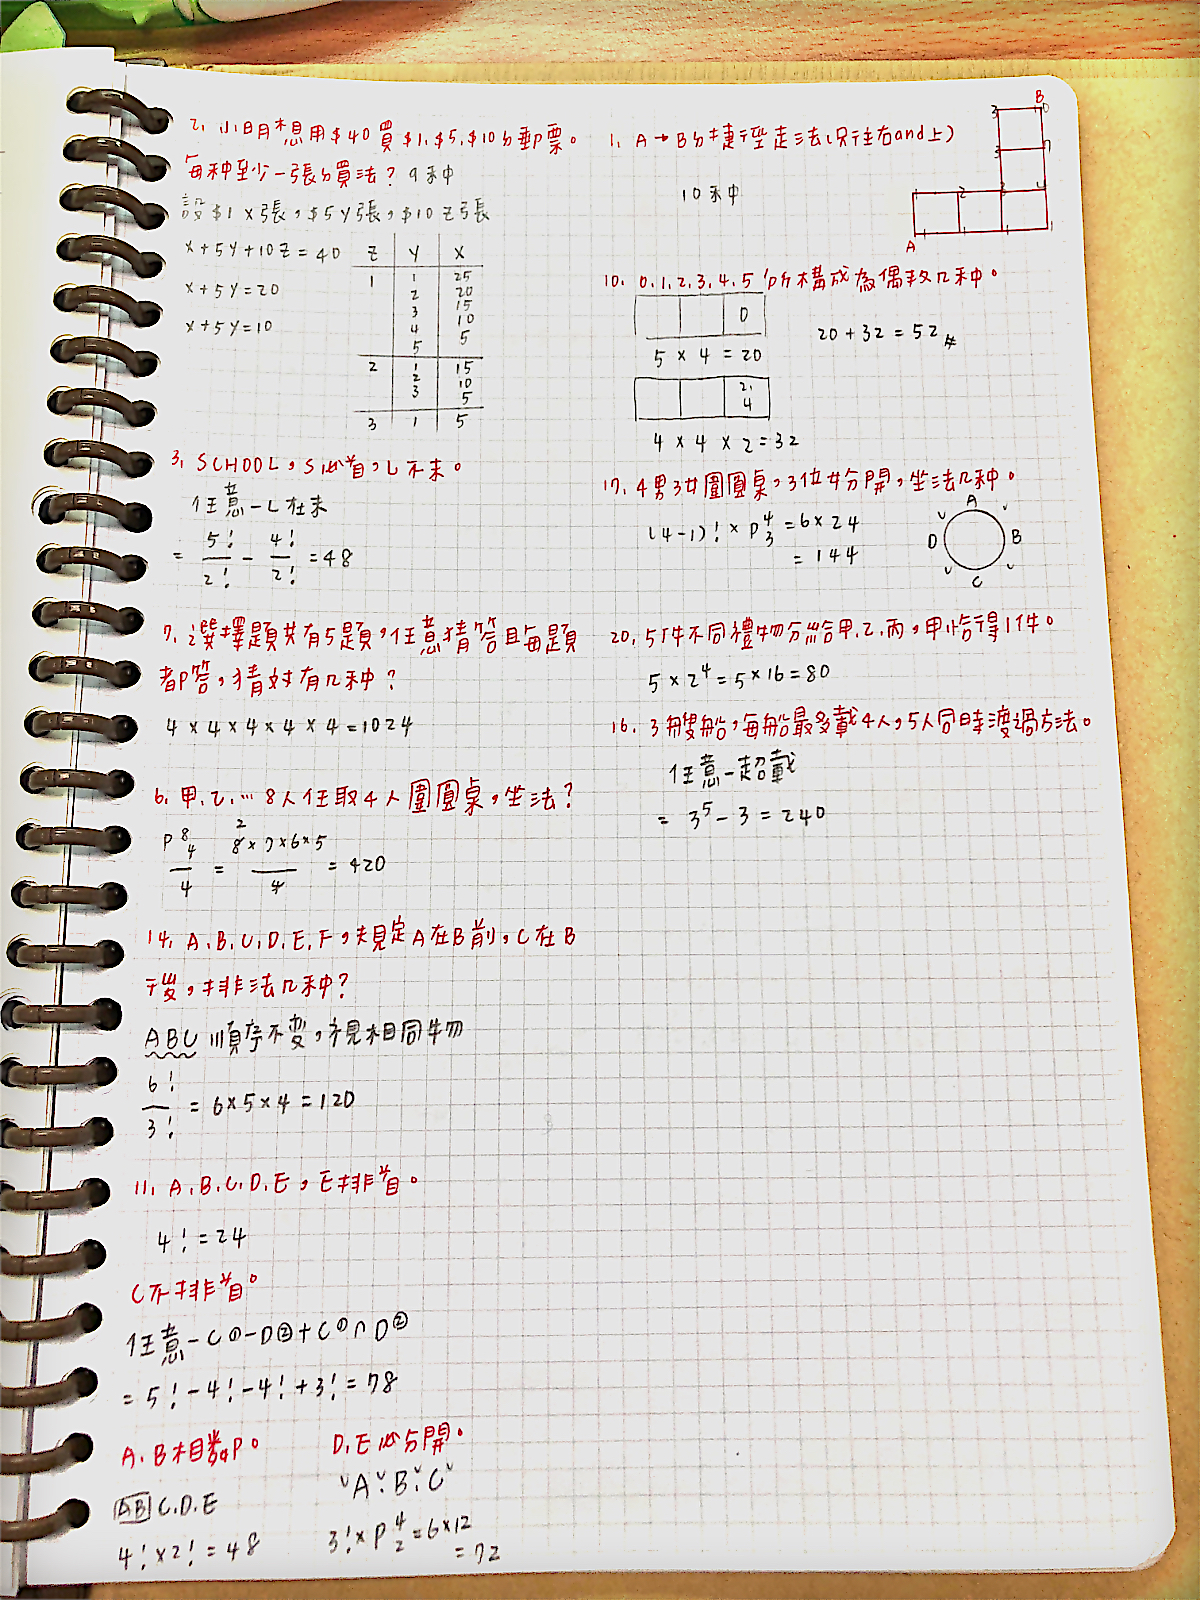 2. 小明想用$40買$1,$5,$10的郵票。
每种至少一張的買法? 9种
設$1 x張,$5 y張,$10 z張
x+5y+10z=40
x+5y=20
x+5y=10
z y x
1 1 25
2 20
3 15
4 10
5 5
2 1 15
2 10
3 5
3 1 5
3. SCHOOL,S必首,L不末。
任意-L在末
= 5!/2! - 4!/2! = 48
7. 選擇題共有5題,任意猜答且每題
都答,猜対有几种?
4×4×4×4×4=1024
6. 甲.乙.…8人任取4人圍圓桌,坐法?
P⁸₄/4 = 8×7×6×5/4 = 420
2
14. A.B.C.D.E.F,規定A在B前,C在B
後,排法几种?
ABC 順序不変,視相同物
6!/3! = 6×5×4=120
11. A.B.C.D.E,E排首。
4!=24
C不排首。
任意-C①-D②+C①∩D②
=5!-4!-4!+3!=78
A.B相鄰。
AB C.D.E
4!×2!=48
D.E必分開。
ˇAˇBˇCˇ
3!×P⁴₂=6×12
=72
1. A→B的捷徑走法(只往右and上)
10种
B
3 10
3 7
1 2 3 4
1 1 1 1
A
10. 0.1.2.3.4.5所構成為偶数几种。
0
5×4=20
20+32=52#
2.
4
4×4×2=32
17. 4男3女圍圓桌,3位女分開,坐法几种。
(4-1)!×P⁴₃=6×24
=144
A
D B
C
20. 5件不同禮物分給甲.乙.丙,甲恰得1件。
5×2⁴=5×16=80
16. 3艘船,每船最多載4人,5人同時渡過方法。
任意-超載
= 3⁵-3=240